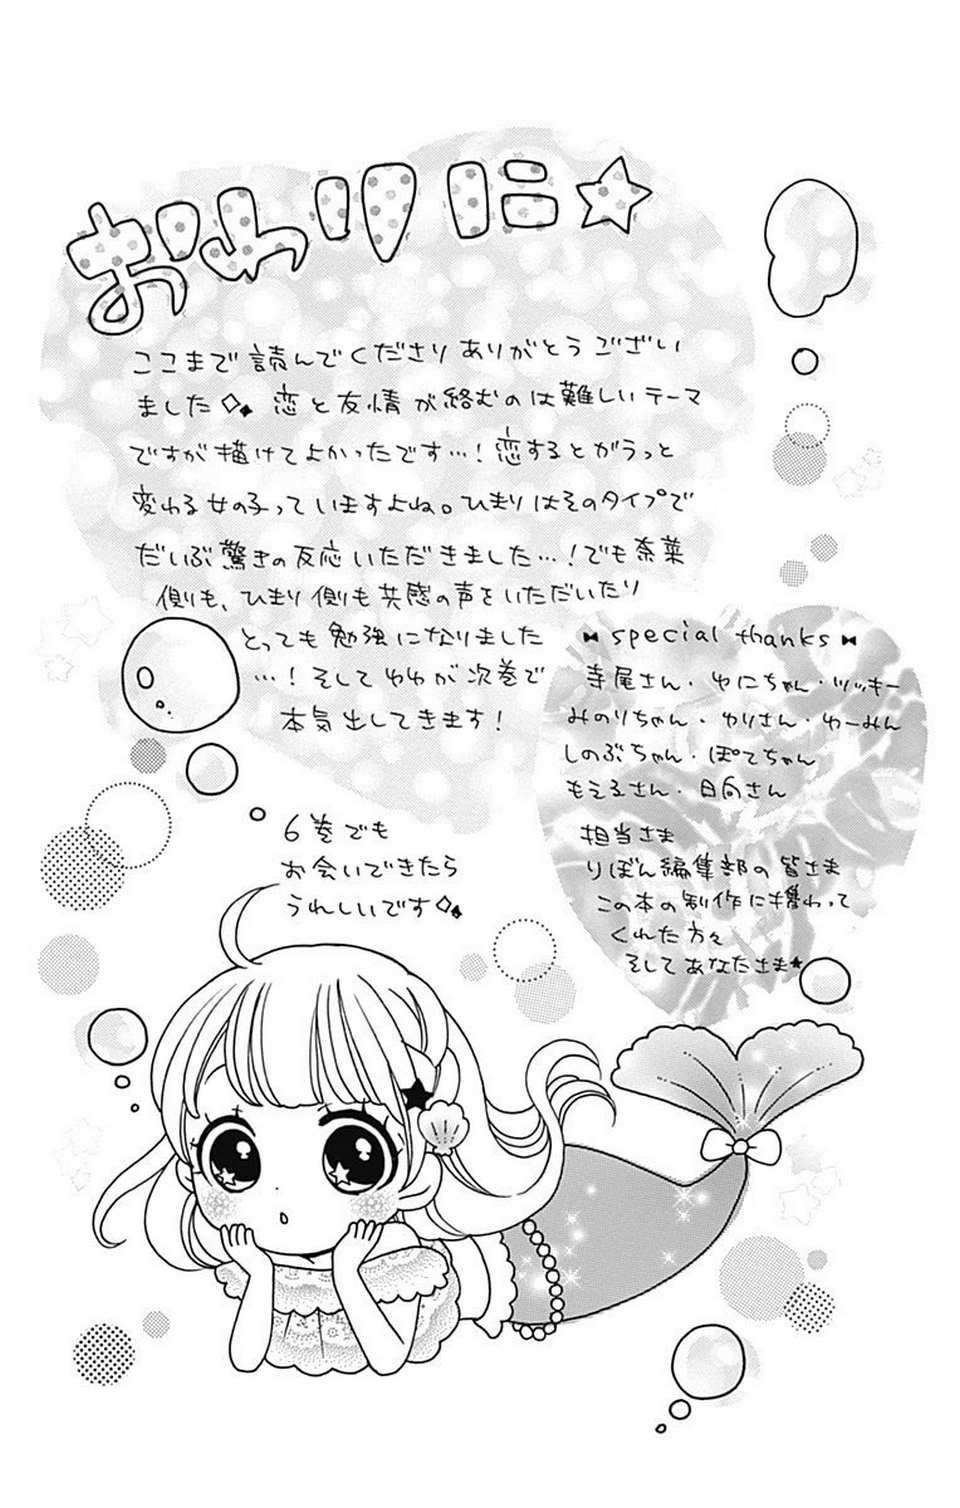 おわりに☆
ここまで読んでくださりありがとうござい
ました 恋と友情が絡むのは難しいテーマ
ですが描けてよかったです…！恋するとがらっと
変わる女の子っていますよね。ひまりはそのタイプで
だいぶ驚きの反応いただきました…！でも奈菜
側も、ひまり側も共感の声をいただいたり
とっても勉強になりました
…！そしてゆわが次巻で
本気出してきます！
6巻でも
お会いできたら
うれしいです
special thanks
寺尾さん・ゆにちゃん・ツッキー
みのりちゃん・ゆりさん・ゆーみん
しのぶちゃん・ぽてちゃん
もえるさん・日向さん
担当さま
りぼん編集部の皆さま
この本の制作に携わって
くれた方々
そしてあなたさま★